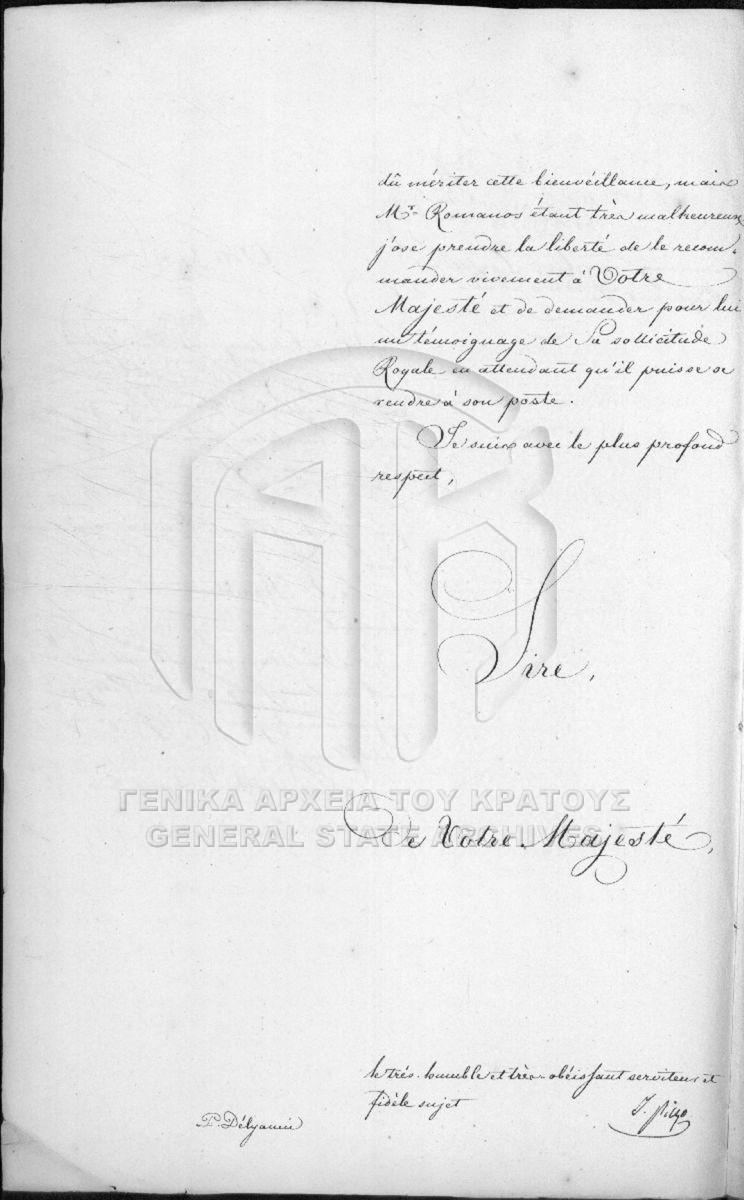 dû mériter cette bienvéillance, mais
Mr. Romanos étant très malheureux
j'ose prendre la liberté de le recom-
mander vivement à Votre
Majesté et de demander pour lui
un témoignage de Sa sollicitude
Royale en attendant qu'il puisse se
rendre à son poste.
Je suis avec le plus profond
respect,
Sire,
ΓΕΝΙΚΑ ΑΡΧΕΙΑ ΤΟΥ ΚΡΑΤΟΥΣ
GENERAL STATE ARCHIVES
De Votre Majesté,
le très-humble et très-obéissant serviteur et
fidèle sujet
P. Délyanni